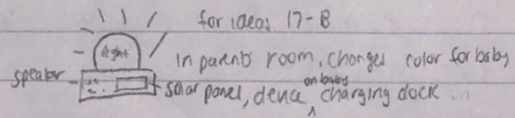 for ideas 17-B
light
in parents room, changes color for baby
speaker
solar panel, device on baby charging dock